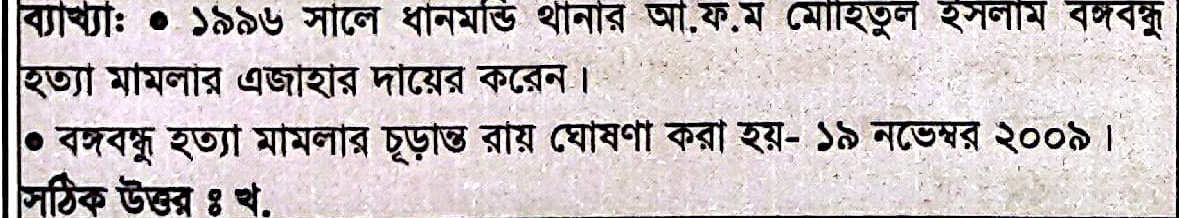 ব্যাখ্যা: ● ১৯৯৬ সালে ধানমন্ডি থানার আ.ফ.ম মোহিতুল ইসলাম বঙ্গবন্ধু
হত্যা মামলার এজাহার দায়ের করেন।
● বঙ্গবন্ধু হত্যা মামলার চূড়ান্ত রায় ঘোষণা করা হয়- ১৯ নভেম্বর ২০০৯।
সঠিক উত্তর ঃ খ.